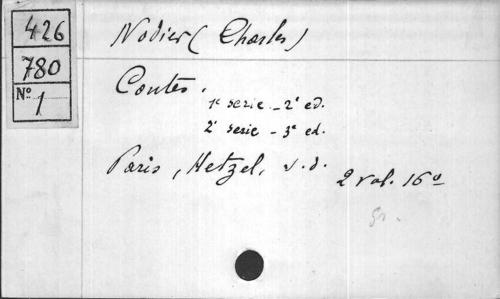 426
780
Nº 1
Nodier (Charles)
Contes.
1e serie - 2e ed.
2e serie - 3e ed.
Paris, Hetzel, s.d.
2 vol. 16º